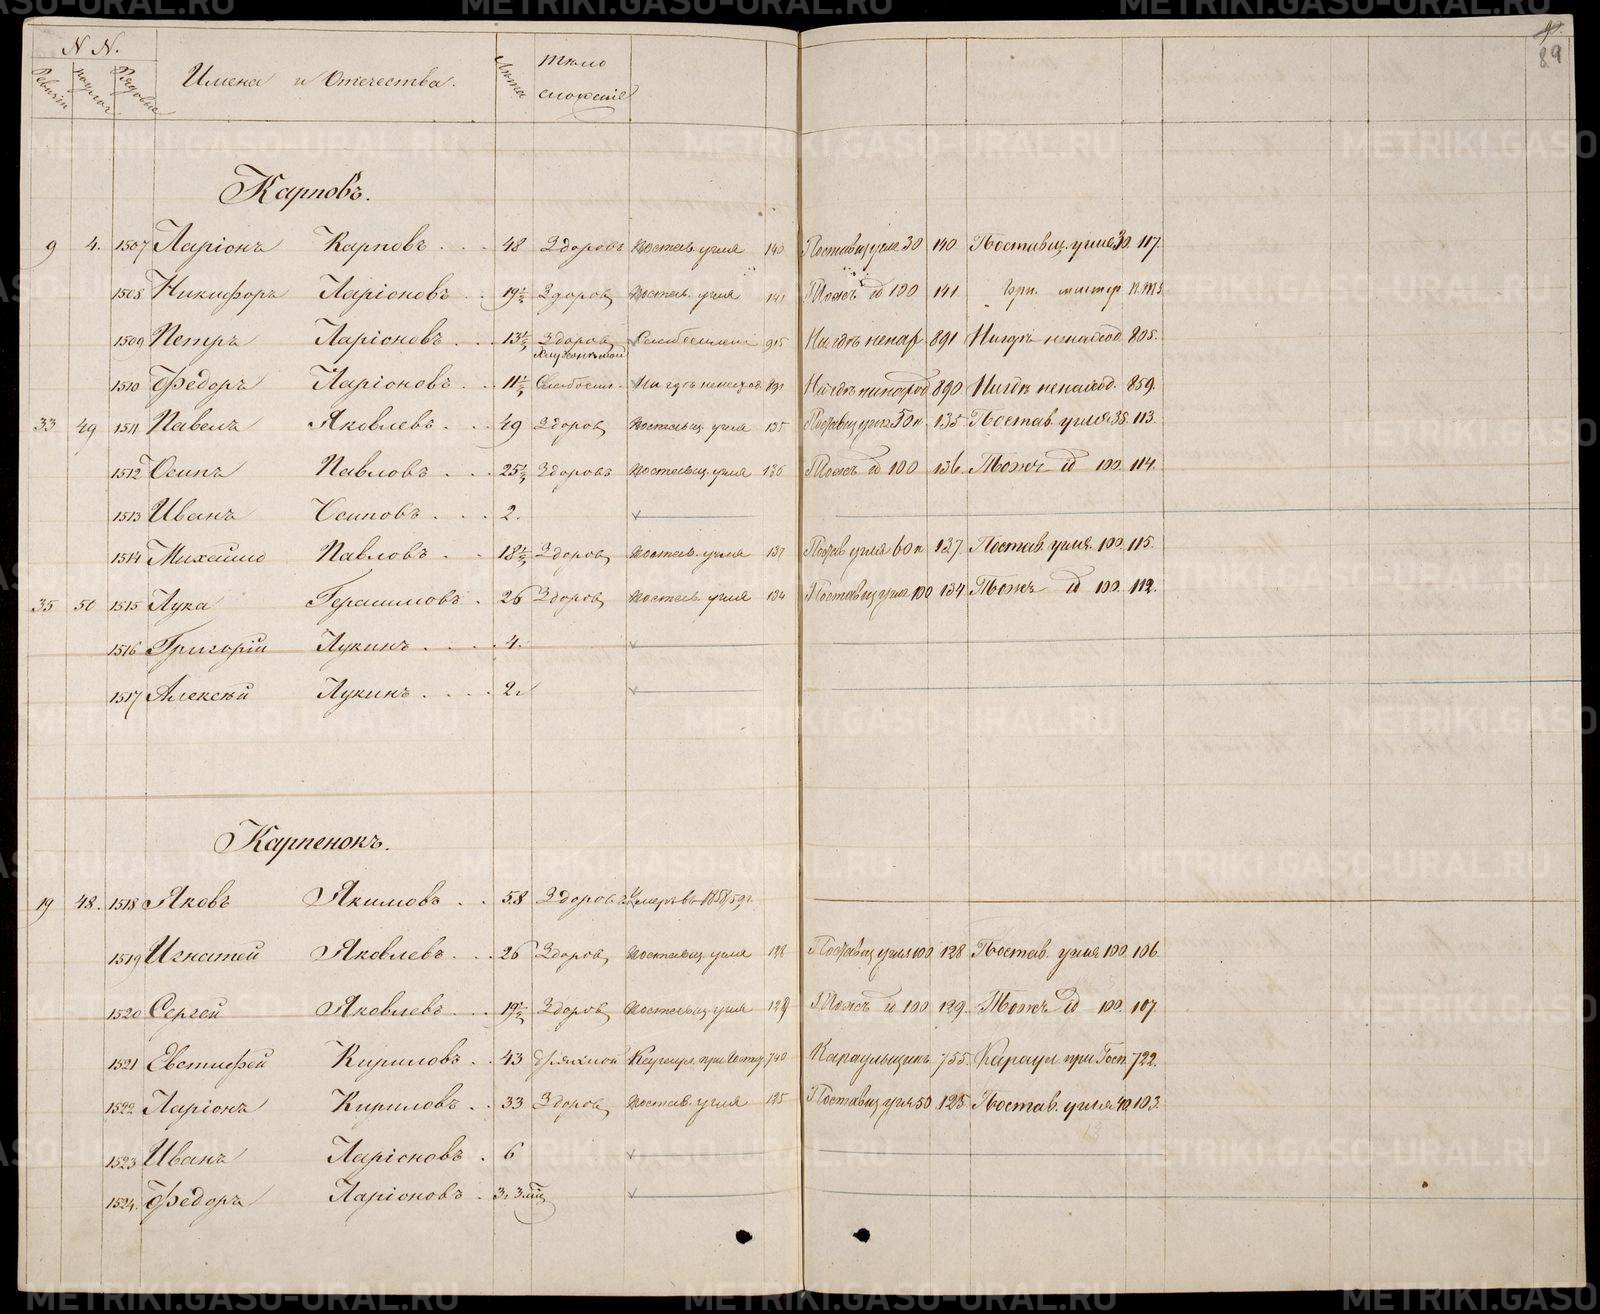 89
N N.
Ревизіи Рядовые Имена и Отчества. Лѣта тѣло сложеніе
Карповъ.
9 4. 1507 Ларіонъ Карповъ 48 Здоровъ постав. угля 140 Поставщ. угля 30 140 Поставщ. угля 30. 117.
1508 Никифоръ Ларіоновъ 19½ Здоров постав. угля 141 Тожъ id 100 141 мастер
1509 Петръ Ларіоновъ 13½ Здоров 915 Нигдѣ ненах 891 Нигдѣ ненаход. 805.
1510 Федоръ Ларіоновъ 11½ Слабосил. Нигдѣ ненаход. 891 Нигдѣ ненаход 890 Нигдѣ ненаход. 859.
33 49 1511 Павелъ Яковлевъ 49 Здоров поставщ. угля 135 135 Постав. угля 35. 113.
1512 Осипъ Павловъ 25½ Здоровъ поставщ. угля 136 Тожъ id 100 136. Тожъ id 100. 114.
1513 Иванъ Осиповъ 2.
1514 Михайло Павловъ 18½ Здоров постав. угля 137 Постав угля 60 п. 137. Постав. угля. 100. 115.
35 50 1515 Лука Герасимовъ 26 Здоров постав. угля 134 Поставщ угля 100 134 Тожъ id 100. 112.
1516 Григорій Лукинъ 4.
1517 Алексѣй Лукинъ 2
Карпенокъ.
19 48. 1518 Яковъ Якимовъ 58 Здоровъ Умеръ въ 1858/59 г.
1519 Игнатей Яковлевъ 26 Здоров поставщ. угля 128 Поставщ угля 100 128 Постав. угля 100. 106.
1520 Сергей Яковлевъ 19½ Здоров поставщ угля 129 Тожъ id 100 129. Тожъ id 100. 107.
1521 Евстифей Кириловъ 43 740 Караульщикъ 755. Караул при Госп. 722.
1522 Ларіонъ Кириловъ 33 Здоров постав. угля 125 Поставщ угля 50 125 Постав. угля 40. 103.
1523 Иванъ Ларіоновъ 6
1524. Федоръ Ларіоновъ 3 г. 3 мѣс
METRIKI.GASO-URAL.RU